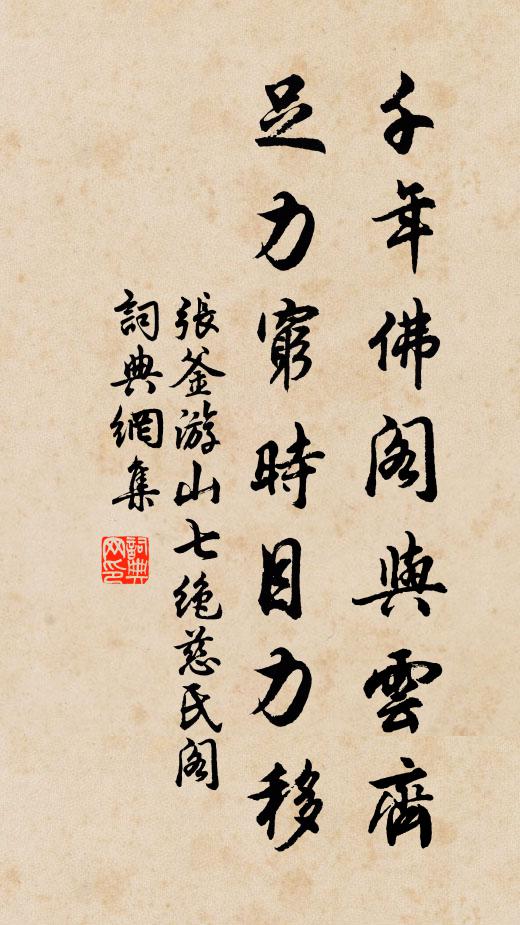 千年佛阁與雲齊
足力窮時目力移
張釜游山七绝慈氏阁
詞典網集
詞典网印